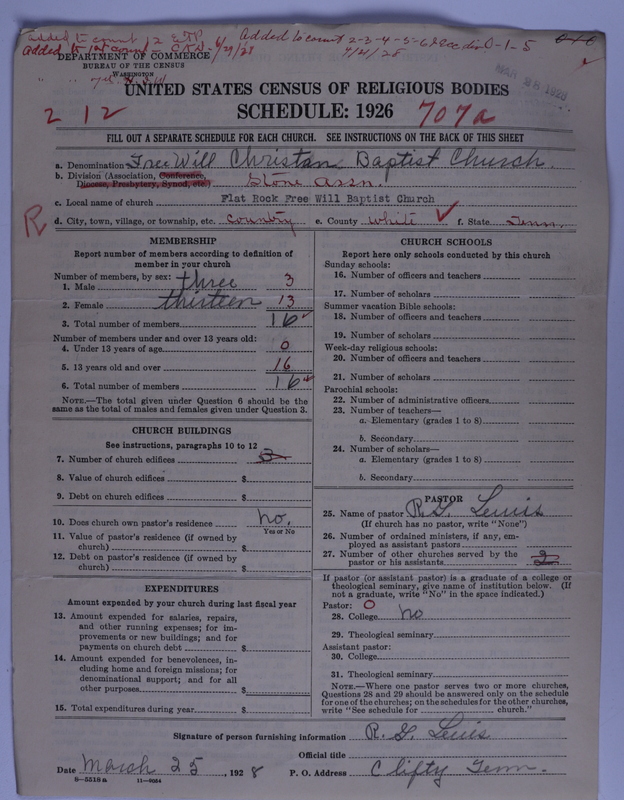 added to count 12 EJP
Added to count 2-3-4-5-6 & see div 0-1-5
added to 1st count - CKW- 6/29/28
9/4/28
DEPARTMENT OF COMMERCE
BUREAU OF THE CENSUS
WASHINGTON
MAR 28 1928
UNITED STATES CENSUS OF RELIGIOUS BODIES
212
SCHEDULE: 1926
707a
FILL OUT A SEPARATE SCHEDULE FOR EACH CHURCH. SEE INSTRUCTIONS ON THE BACK OF THIS SHEET
a. Denomination Free Will Christan Baptist Church.
b. Division (Association, Conference, Diocese, Presbytery, Synod, etc.) Stone Assn.
c. Local name of church Flat Rock Free Will Baptist Church
R
d. City, town, village, or township, etc. Country e. County White f. State Tenn.
MEMBERSHIP
Report number of members according to definition of
member in your church
Number of members, by sex:
1. Male three 3
2. Female thirteen 13
3. Total number of members 16
Number of members under and over 13 years old:
4. Under 13 years of age 0
5. 13 years old and over 16
6. Total number of members 16
NOTE.—The total given under Question 6 should be
same as the total of males and females given under Question 3.
CHURCH BUILDINGS
See instructions, paragraphs 10 to 12
7. Number of church edifices
8. Value of church edifices $
9. Debt on church edifices $
10. Does church own pastor's residence no.
Yes or No
11. Value of pastor's residence (if owned by
church) $
12. Debt on pastor's residence (if owned by
church) $
EXPENDITURES
Amount expended by your church during last fiscal year
13. Amount expended for salaries, repairs,
and other running expenses; for im-
provements or new buildings; and for
payments on church debt $
14. Amount expended for benevolences, in-
cluding home and foreign missions; for
denominational support; and for all
other purposes $
15. Total expenditures during year $
CHURCH SCHOOLS
Report here only schools conducted by this church
Sunday schools:
16. Number of officers and teachers
17. Number of scholars
Summer vacation Bible schools:
18. Number of officers and teachers
19. Number of scholars
Week-day religious schools:
20. Number of officers and teachers
21. Number of scholars
Parochial schools:
22. Number of administrative officers
23. Number of teachers—
a. Elementary (grades 1 to 8)
b. Secondary
24. Number of scholars—
a. Elementary (grades 1 to 8)
b. Secondary
PASTOR
25. Name of pastor R. G. Lewis
(If church has no pastor, write "None")
26. Number of ordained ministers, if any, em-
ployed as assistant pastors
27. Number of other churches served by the
pastor or his assistants 2
If pastor (or assistant pastor) is a graduate of a college or
theological seminary, give name of institution below. (If
not a graduate, write "No" in the space indicated.)
Pastor: 0
28. College no
29. Theological seminary
Assistant pastor:
30. College
31. Theological seminary
NOTE.—Where one pastor serves two or more churches,
Questions 28 and 29 should be answered only on the schedule
for one of the churches; on the schedules for the other churches,
write "See schedule for church."
Signature of person furnishing information R. G. Lewis
Official title
Date March 25, 1928 P. O. Address Clifty Tenn.
8-5518a 11-9064